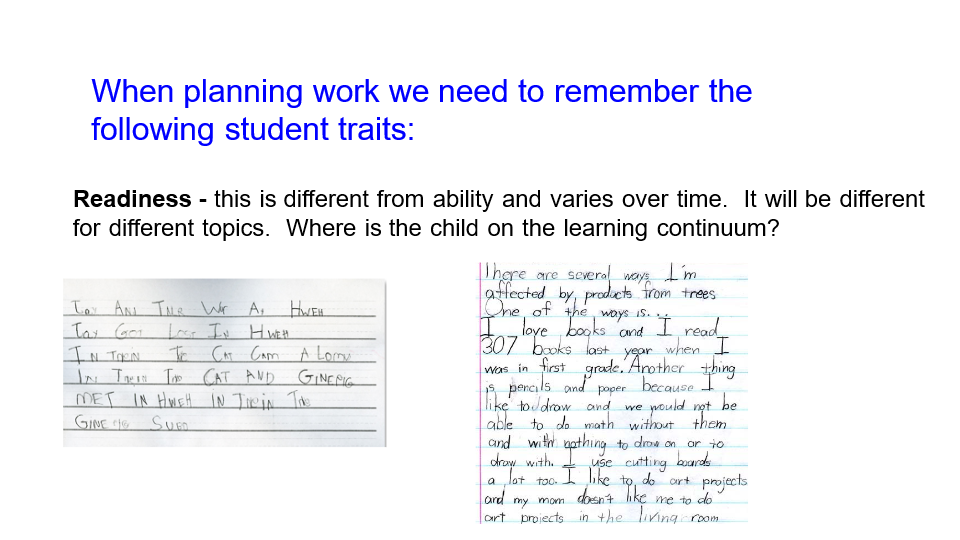 When planning work we need to remember the
following student traits:
Readiness - this is different from ability and varies over time. It will be different
for different topics. Where is the child on the learning continuum?
AND A HWEH
GOT LOST IN HWEH
IN CAT CAM A
IN CAT AND GINEPIG
MET IN HWEH IN
GINEPIG SUED
There are several ways I'm
affected by products from trees
One of the ways is...
I love books and I read
307 books last year when I
was in first grade. Another thing
is pencils and paper because I
like to draw and we would not be
able to do math without them
and with nothing to draw on or to
draw with. I use cutting boards
a lot too. I like to do art projects
and my mom doesn't like me to do
art projects in the living room